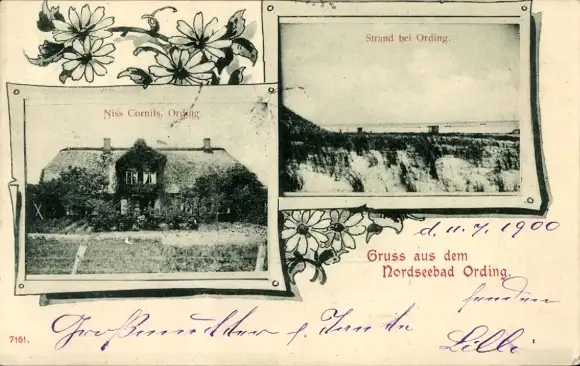 Strand bei Ording.
Niss Cornils, Ording.
d. 11. 7. 1900
Gruss aus dem
Nordseebad Ording.
senden
Großmutter & Tante
Lilli
7161.